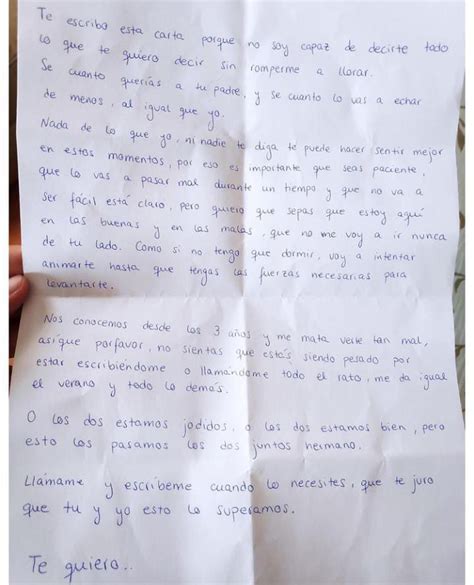 Te escribo esta carta porque no soy capaz de decirte todo
lo que te quiero decir sin romperme a llorar.
Se cuanto querías a tu padre, y se cuanto lo vas a echar
de menos, al igual que yo.
Nada de lo que yo, ni nadie te diga te puede hacer sentir mejor
en estos momentos, por eso es importante que seas paciente,
que lo vas a pasar mal durante un tiempo y que no va a
ser fácil está claro, pero quiero que sepas que estoy aquí
en las buenas y en las malas, que no me voy a ir nunca
de tu lado. Como si no tengo que dormir, voy a intentar
animarte hasta que tengas las fuerzas necesarias para
levantarte.
Nos conocemos desde los 3 años y me mata verte tan mal,
asique porfavor, no sientas que estás siendo pesado por
estar escribiéndome o llamándome todo el rato, me da igual
el verano y todo lo demás.
O los dos estamos jodidos, o los dos estamos bien, pero
esto los pasamos los dos juntos hermano.
Llámame y escríbeme cuando lo necesites, que te juro
que tu y yo esto lo superamos.
Te quiero..